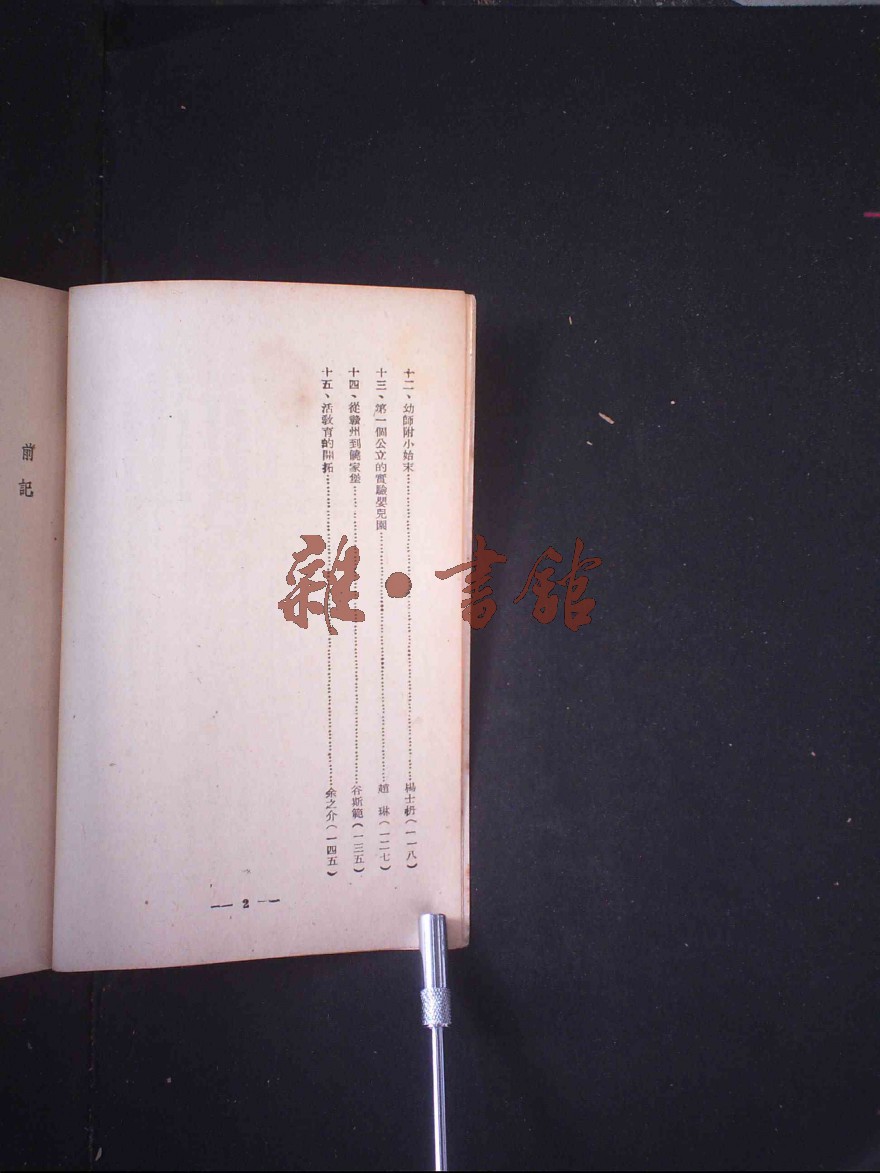 十二、幼師附小始末……楊士枬(一一八)
十三、第一個公立的實驗嬰兒園……趙琳(一二七)
十四、從贛州到饒家堡……谷斯範(一三五)
十五、活教育的開拓……余之介(一四五)
— 2 —
前記
雜·書館